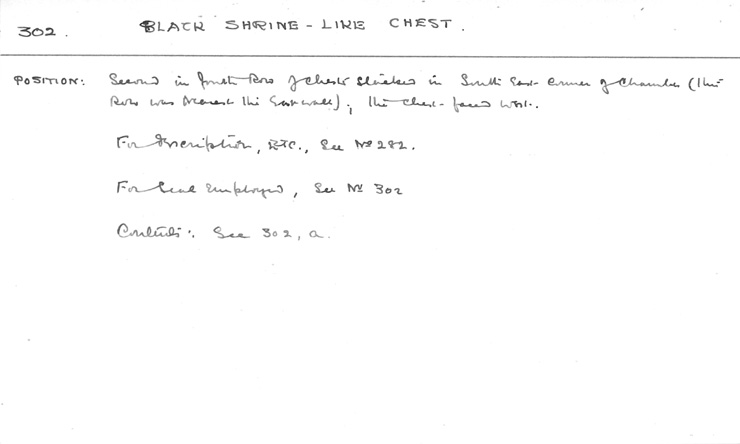 302. BLACK SHRINE-LIKE CHEST.
POSITION: Second in fourth Row of chests stacked in South East corner of Chamber (this
Row was nearest the East wall); the chest faced West.
For Description, ETC., See Nº 282.
For Seal Employed, See Nº 302
Contents: See 302, a.